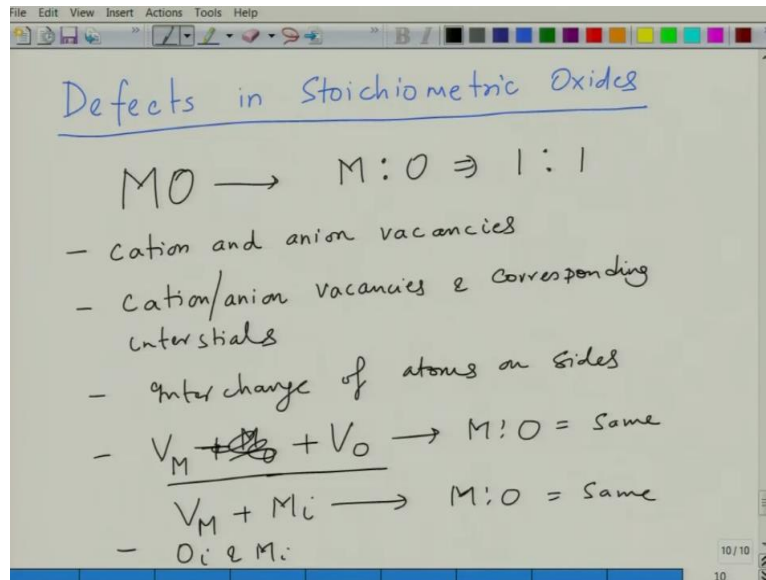 File Edit View Insert Actions Tools Help
B I
Defects in Stoichiometric Oxides
MO → M : O ⇒ 1 : 1
- Cation and anion vacancies
- Cation/anion vacancies & corresponding
interstials
- Interchange of atoms on sides
- V_M + V_O → M : O = Same
V_M + M_i → M : O = Same
- O_i & M_i
10 / 10
10